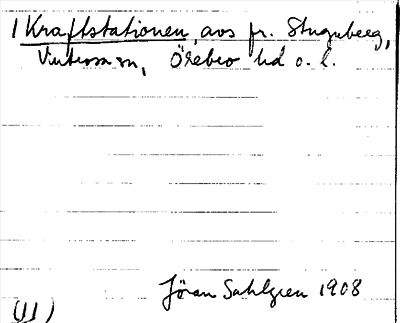 1 Kraftstationen, avs fr. Stuguberg,
Vintrosa sn, Örebro hd o. l.
Jöran Sahlgren 1908
(U)